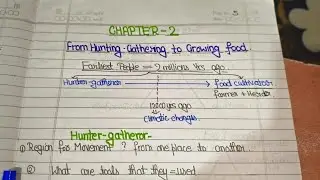 CHAPTER-2
From Hunting-Gathering to Growing food.
Earliest People = 2 millions yrs ago.
Hunter-gatherer food cultivator
farmer + Herder
12000 yrs ago
Climatic changes.
Hunter-gatheror-
① Region for Movement ? from one place to another
② What are tools that they used